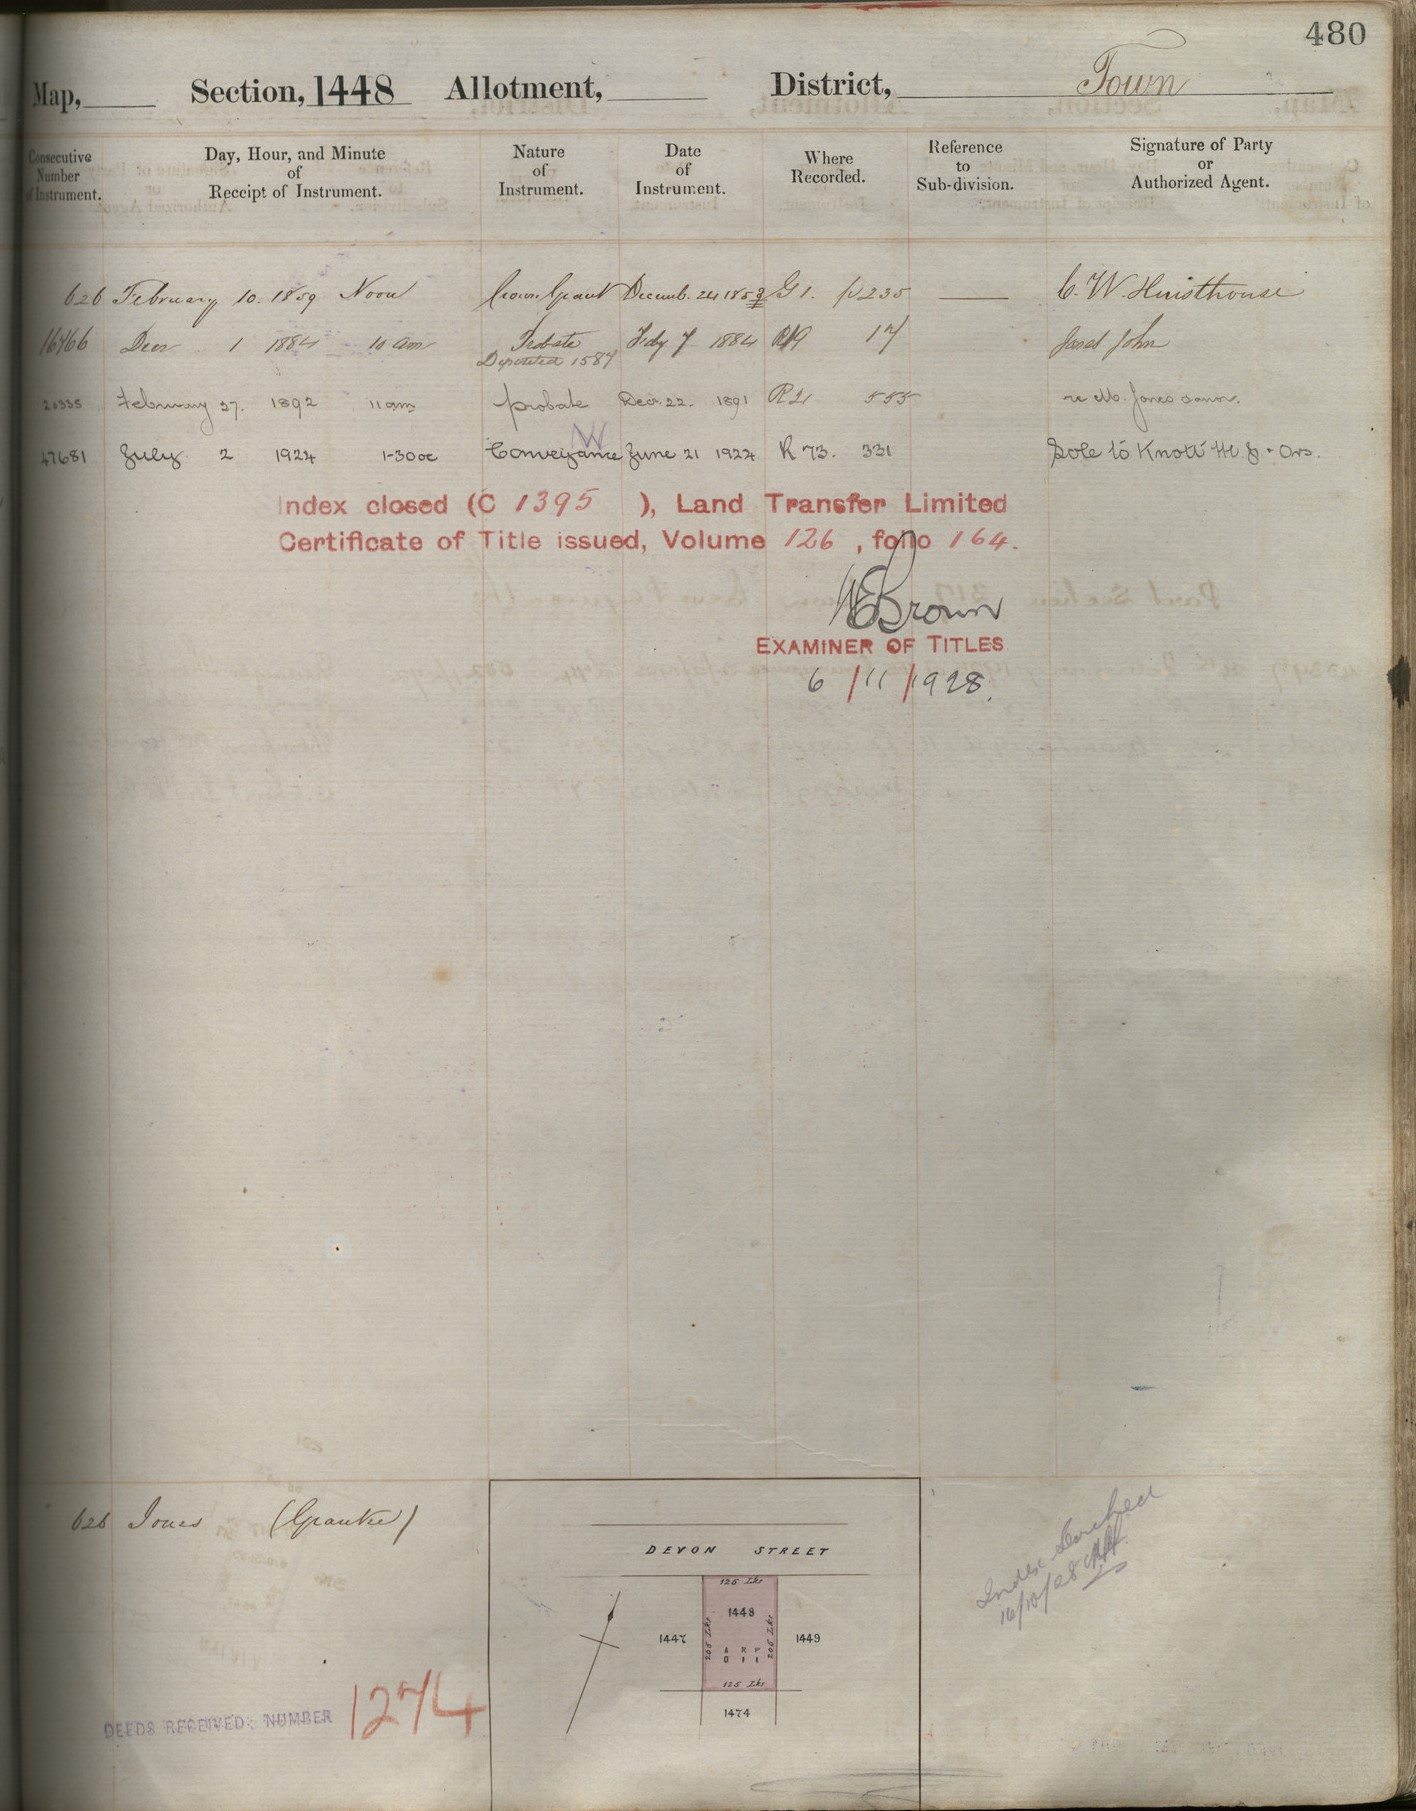 480
Map, Section, 1448 Allotment, District, Town
Consecutive Number of Instrument.
Day, Hour, and Minute of Receipt of Instrument.
Nature of Instrument.
Date of Instrument.
Where Recorded.
Reference to Sub-division.
Signature of Party or Authorized Agent.
626 February 10. 1859 Noon Crown Grant Decemb. 24 1853 G 1. 235 C. W. Hursthouse
16466 Decr 1 1884 10 am Probate Feby 7 1884 R19 17 John
Deposited 1587
20335 February 27. 1892 11 am probate Decr. 22. 1891 R21 555 re M. Jones
47681 July 2 1924 1-30 oc Conveyance June 21 1924 R 73. 331 Sole to Knott H. J. & Ors.
Index closed (C 1395 ), Land Transfer Limited
Certificate of Title issued, Volume 126 , folio 164.
WEBrown
EXAMINER OF TITLES
6/11/1928.
626 Jones (Grantee)
DEVON STREET
125 Lks
1448
205 Lks
205 Lks
1447
1449
A R P
0 1 1
125 Lks
1474
Index Searched
16/10/28
DEEDS RECEIVED: NUMBER 1274